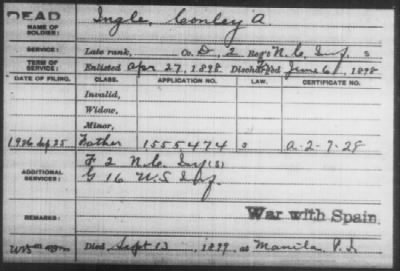 DEAD
NAME OF SOLDIER: Ingle, Conley A.
SERVICE: Late rank, Co. D, 2 Reg't N.C. Inf. S
TERM OF SERVICE: Enlisted Apr 27, 1898 Discharged June 6, 1898
DATE OF FILING. CLASS. APPLICATION NO. LAW. CERTIFICATE NO.
Invalid,
Widow,
Minor,
1926 Sep 25 Father 1555474 S A-2-7-28
ADDITIONAL SERVICES: F 2 N.C. Inf (S)
G 16 U.S. Inf.
REMARKS: War with Spain.
Died Sept 13, 1899, at Manila P.I.